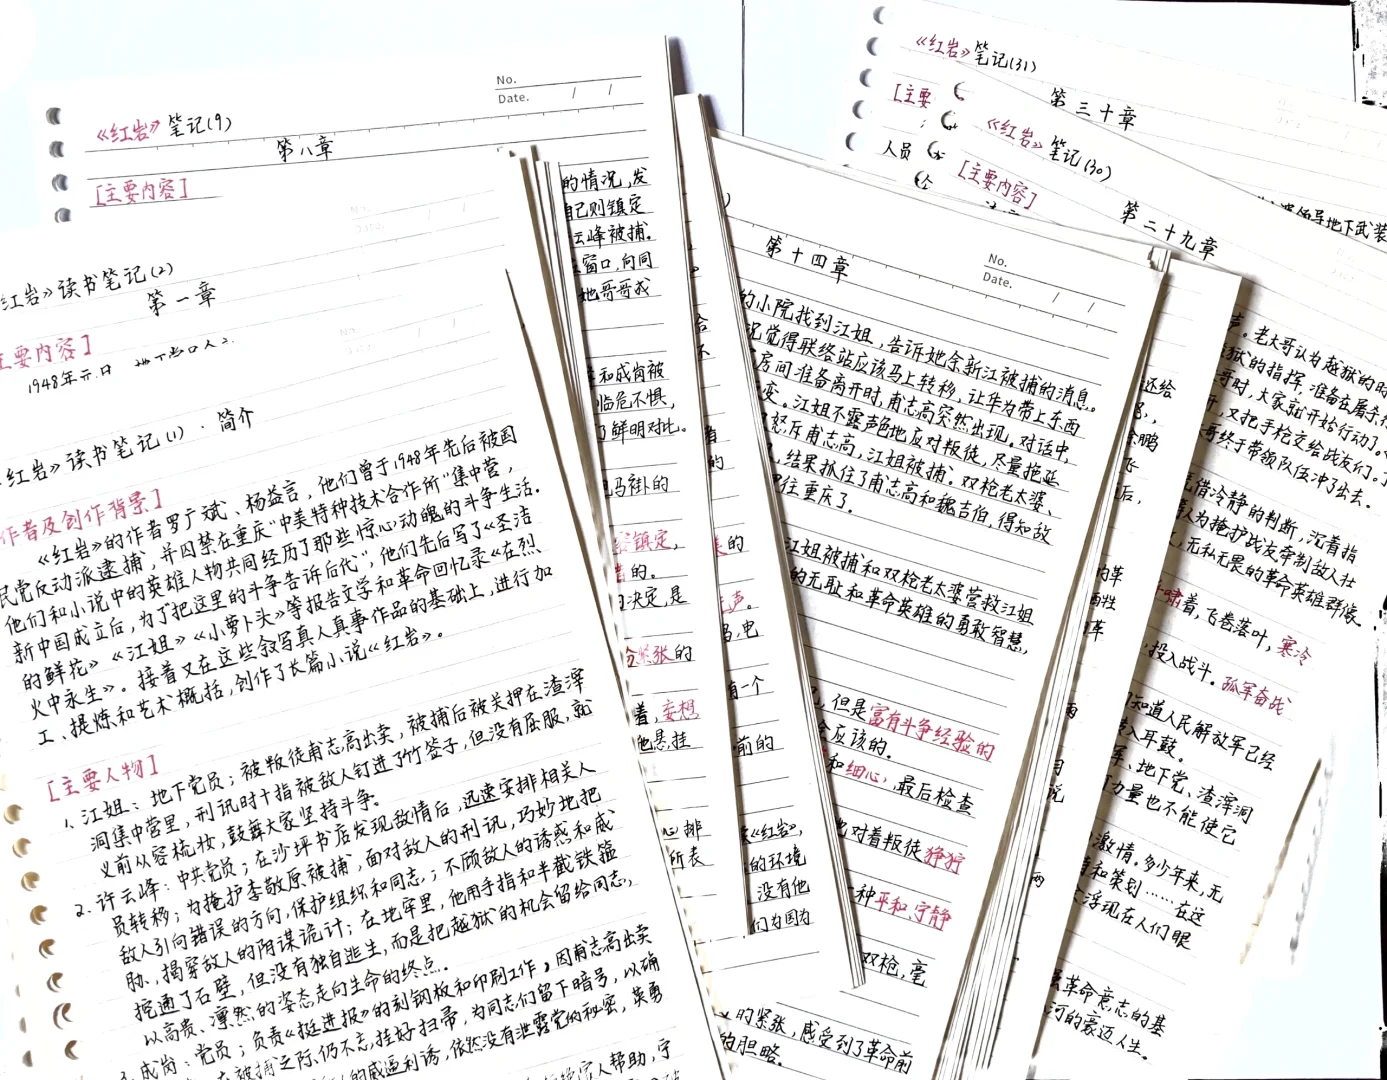 《红岩》笔记(9)
No.
Date. / /
第八章
[主要内容]
的情况,发
自己则镇定
云峰被捕。
窗口,向同
她哥哥成
和成岗被
临危不惧,
了鲜明对比。
马褂的
容镇定,
的。
决定,是
紧张的
着,妄想
他悬挂
红岩》读书笔记(2)
第一章
主要内容]
1948年元日
红岩》读书笔记(1)·简介
作者及创作背景]
《红岩》的作者罗广斌、杨益言,他们曾于1948年先后被国
民党反动派逮捕,并囚禁在重庆"中美特种技术合作所"集中营,
他们和小说中的英雄人物共同经历了那些惊心动魄的斗争生活。
新中国成立后,为了把这里的斗争告诉后代",他们先后写了《圣洁
的鲜花》《江姐》《小萝卜头》等报告文学和革命回忆录《在烈
火中永生》。接着又在这些叙写真人真事作品的基础上,进行加
工、提炼和艺术概括,创作了长篇小说《红岩》。
[主要人物]
1. 江姐:地下党员;被叛徒甫志高出卖,被捕后被关押在渣滓
洞集中营里,刑讯时十指被敌人钉进了竹签子,但没有屈服,就
义前从容梳妆,鼓舞大家坚持斗争。
2. 许云峰:中共党员;在沙坪书店发现敌情后,迅速安排相关人
员转移;为掩护李敬原被捕,面对敌人的刑讯,巧妙地把
敌人引向错误的方向,保护组织和同志,;不顾敌人的诱惑和威
胁,揭穿敌人的阴谋诡计;在地牢里,他用手指和半截铁箍
挖通了石壁,但没有独自逃生,而是把越狱的机会留给同志,
以高贵、凛然的姿态走向生命的终点。
成岗:党员;负责《挺进报》的刻钢板和印刷工作,因甫志高出卖
被捕之际,仍不忘挂好扫帚,为同志们留下暗号,以确
的威逼利诱,依然没有泄露党的秘密,英勇
人帮助,宁
的
声。
电
有一个
前的
《红岩》,
的环境
没有他
们为因为
第十四章
No.
Date. / /
的小院找到江姐,告诉她余新江被捕的消息。
觉得联络站应该马上转移,让华为带上东西
房间准备离开时,甫志高突然出现。对话中
变。江姐不露声色地应对叛徒,尽量拖延
怒斥甫志高,江姐被捕。双枪老太婆、
结果抓住了甫志高和魏吉伯,得知敌
往重庆了。
江姐被捕和双枪老太婆营救江姐
的无耻和革命英雄的勇敢智慧,
但是富有斗争经验的
应该的。
和细心,最后检查
对着叛徒狰狞
种平和、宁静
双枪,毫
的紧张,感受到了革命前
的胆略。
《红岩》笔记(31)
第三十章
[主要
人员
领导地下武装
《红岩》笔记(30)
[主要内容]
第二十九章
老大哥认为越狱的时
狱的指挥,准备在屠杀
哥时,大家就开始行动了。
又把手枪交给战友们。
哥终于带领队伍冲了出去。
借冷静的判断,沉着指
为掩护战友牵制敌人壮
无私无畏的革命英雄群像。
啸着,飞卷落叶,寒冷
投入战斗。孤军奋战
知道人民解放军已经
传入耳鼓。
军、地下党,渣滓洞
力量也不能使它
激情。多少年来,无
和策划……在这
浮现在人们眼
革命意志的基
河的豪迈人生。